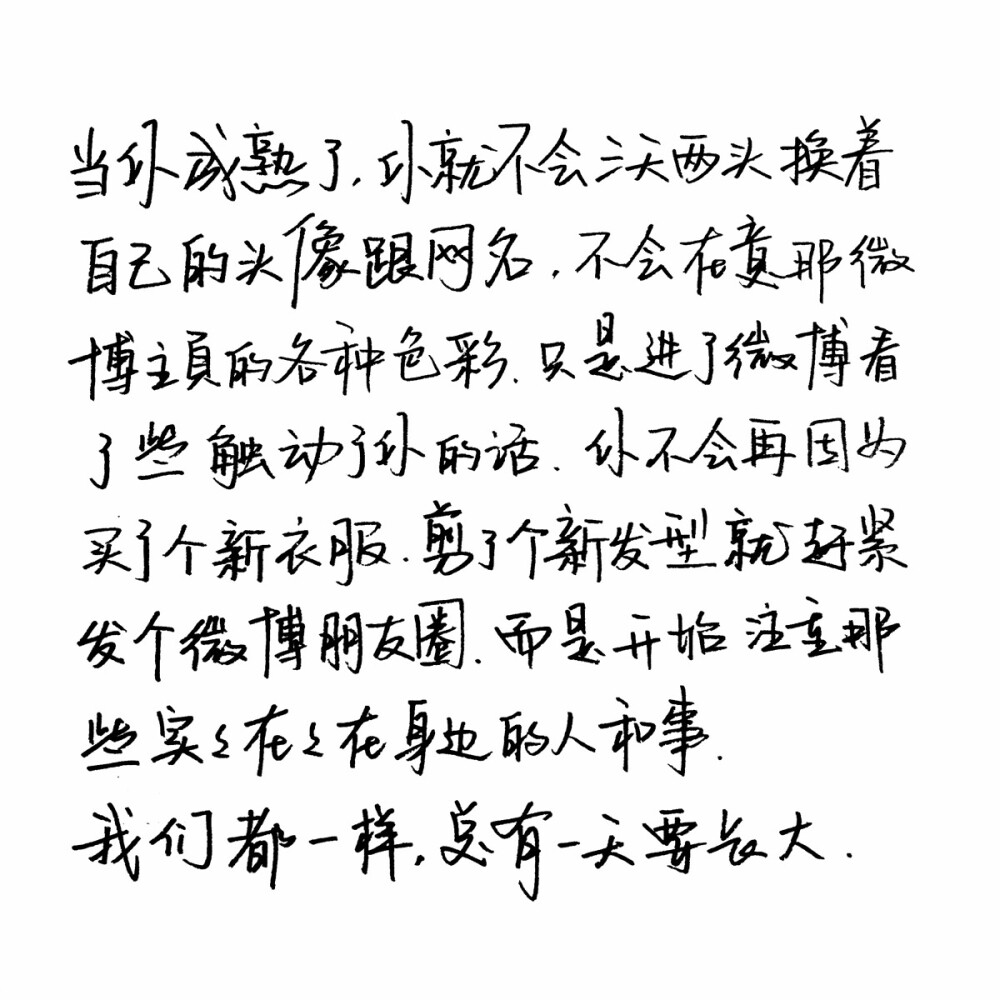 当你成熟了,你就不会三天两头换着
自己的头像跟网名,不会在意那微
博主頁的各种色彩.只是进了微博看
了些触动了你的话.你不会再因为
买了个新衣服.剪了个新发型就赶紧
发个微博朋友圈.而是开始注重那
些实々在々在身边的人和事.
我们都一样,总有一天要长大.